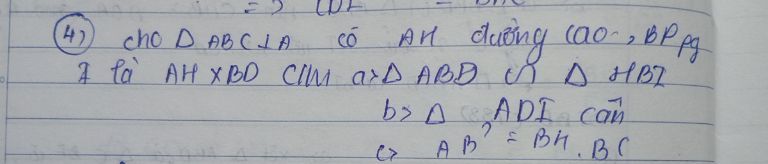 4) cho Δ ABC ⊥ A có AH đường cao, BD pg
I là AH x BD C/M a> Δ ABD ∽ Δ HBI
b> Δ ADI cân
c> AB² = BH . BC